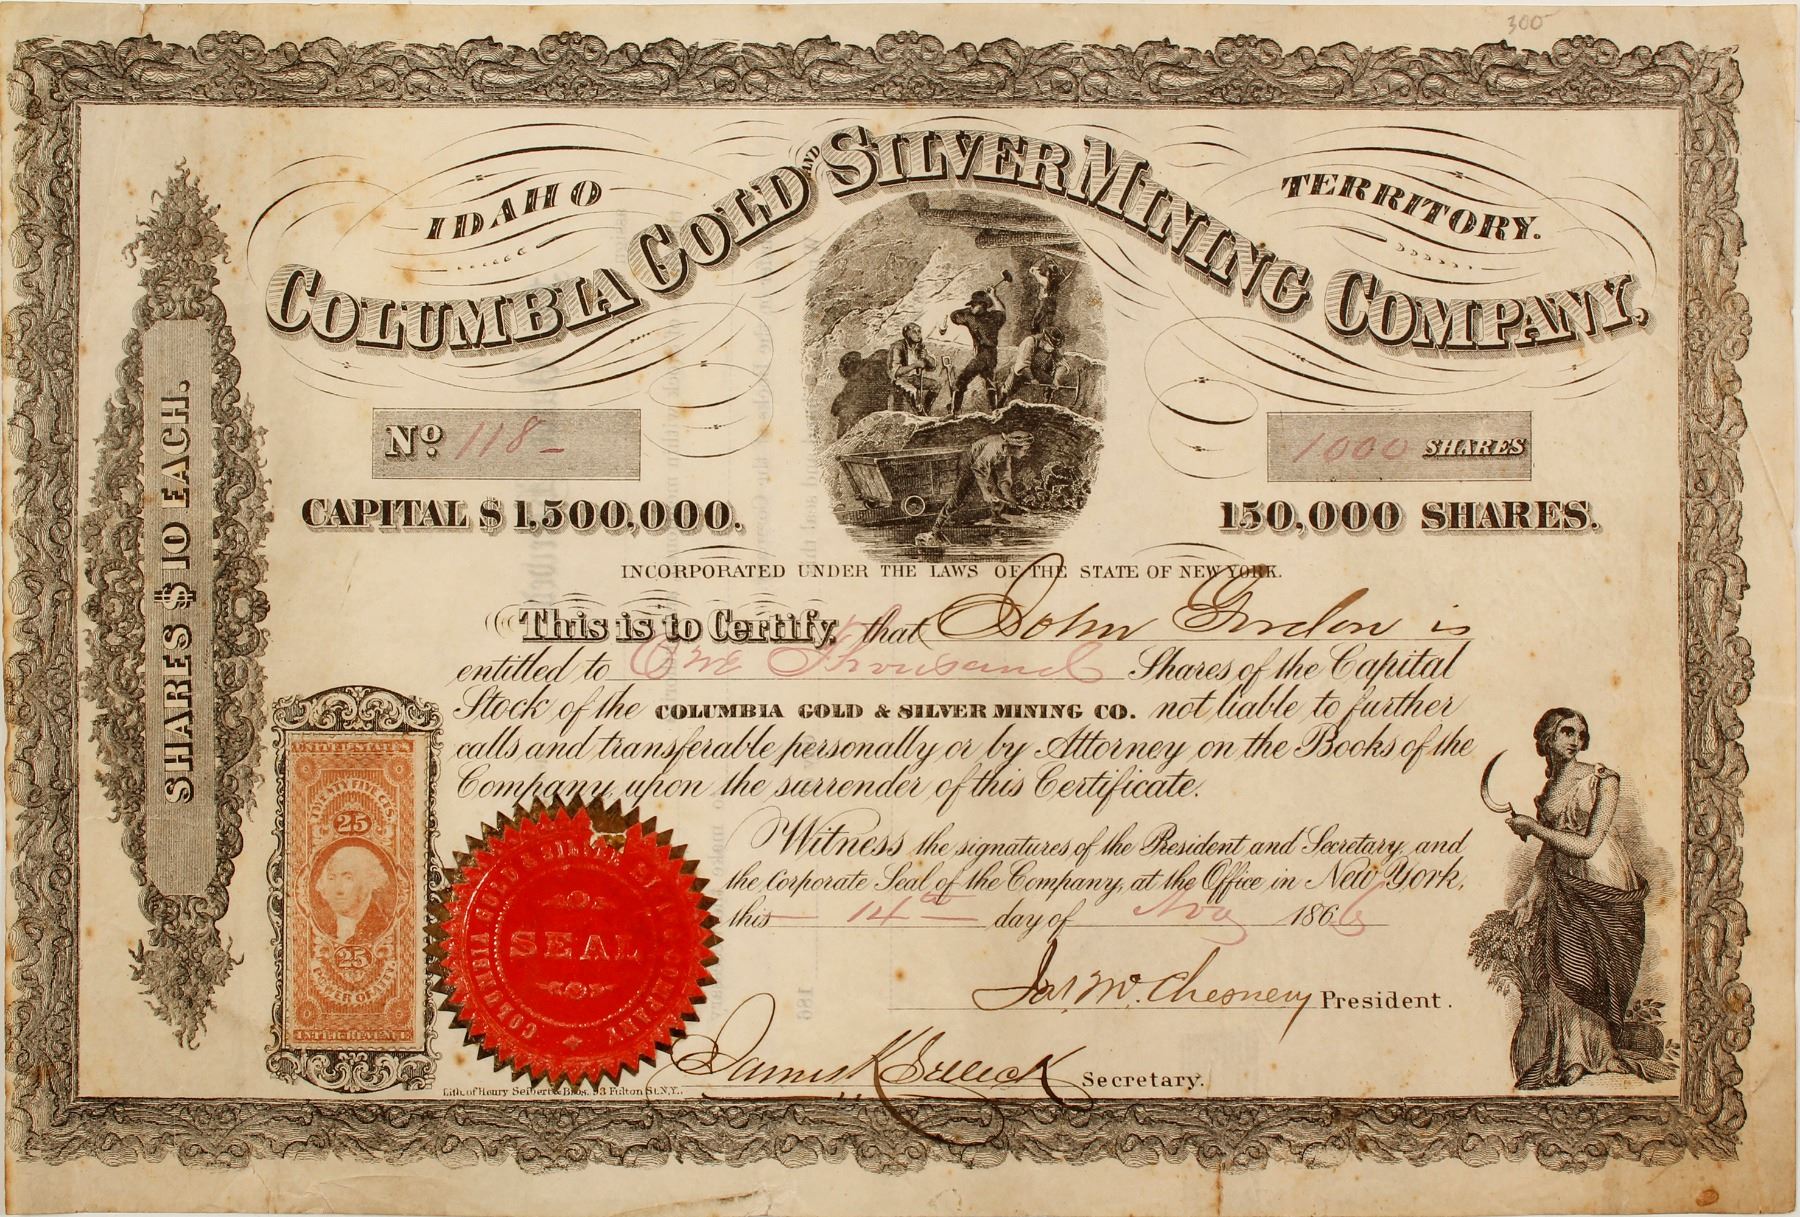 300
IDAHO TERRITORY.
COLUMBIA GOLD AND SILVER MINING COMPANY,
SHARES $10 EACH.
No. 118 –
1000 SHARES
CAPITAL $1,500,000.
150,000 SHARES.
INCORPORATED UNDER THE LAWS OF THE STATE OF NEW YORK.
This is to Certify, that John Gordon is
entitled to One Thousand Shares of the Capital
Stock of the COLUMBIA GOLD & SILVER MINING CO. not liable to further
calls and transferable personally or by Attorney on the Books of the
Company upon the surrender of this Certificate.
Witness the signatures of the President and Secretary, and
the Corporate Seal of the Company, at the Office in New York,
this 14th day of Nov 1866
UNITED STATES
TWENTY FIVE CTS.
25
25
POWER OF ATT'Y
INTER. REVENUE
COLUMBIA GOLD & SILVER MINING COMPANY
SEAL
Jas. Mc. Chesney President.
Secretary.
Lith. of Henry Seibert & Bros. 93 Fulton St. N.Y.